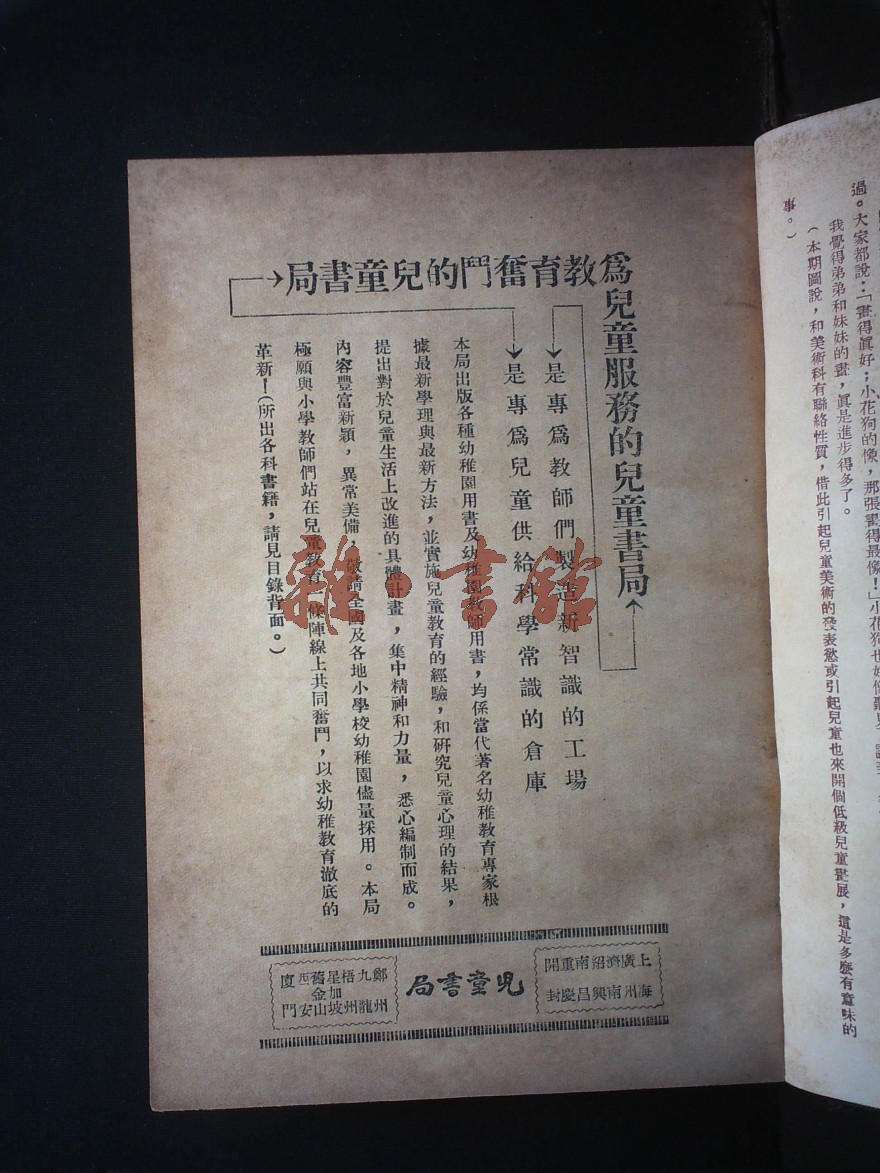 過。大家都說：「畫得眞好；小花狗的像，那張畫得最像！」小花狗也好像聽見
我覺得弟弟和妹妹的畫，眞是進步得多了。
（本期圖說，和美術科有聯絡性質，借此引起兒童美術的發表慾或引起兒童也來開個低級兒童畫展，這是多麽有意味的
事。）
爲兒童服務的兒童書局
爲教育奮鬥的兒童書局
是專爲教師們製造新智識的工場
是專爲兒童供給科學常識的倉庫
本局出版各種幼稚園用書及幼稚園教師用書，均係當代著名幼稚教育專家根
據最新學理與最新方法，並實施兒童教育的經驗，和硏究兒童心理的結果，
提出對於兒童生活上改進的具體計畫，集中精神和力量，悉心編制而成。
內容豐富新穎，異常美備，敬請全國及各地小學校幼稚園儘量採用。本局
極願與小學教師們站在兒童教育一條陣線上共同奮鬥，以求幼稚教育澈底的
革新！（所出各科書籍，請見目錄背面。）
上海 廣州 濟南 紹興 南昌 重慶 開封
兒童書局
鄭州 九龍 梧州 星加坡 舊金山 西安 廈門
雜·書館